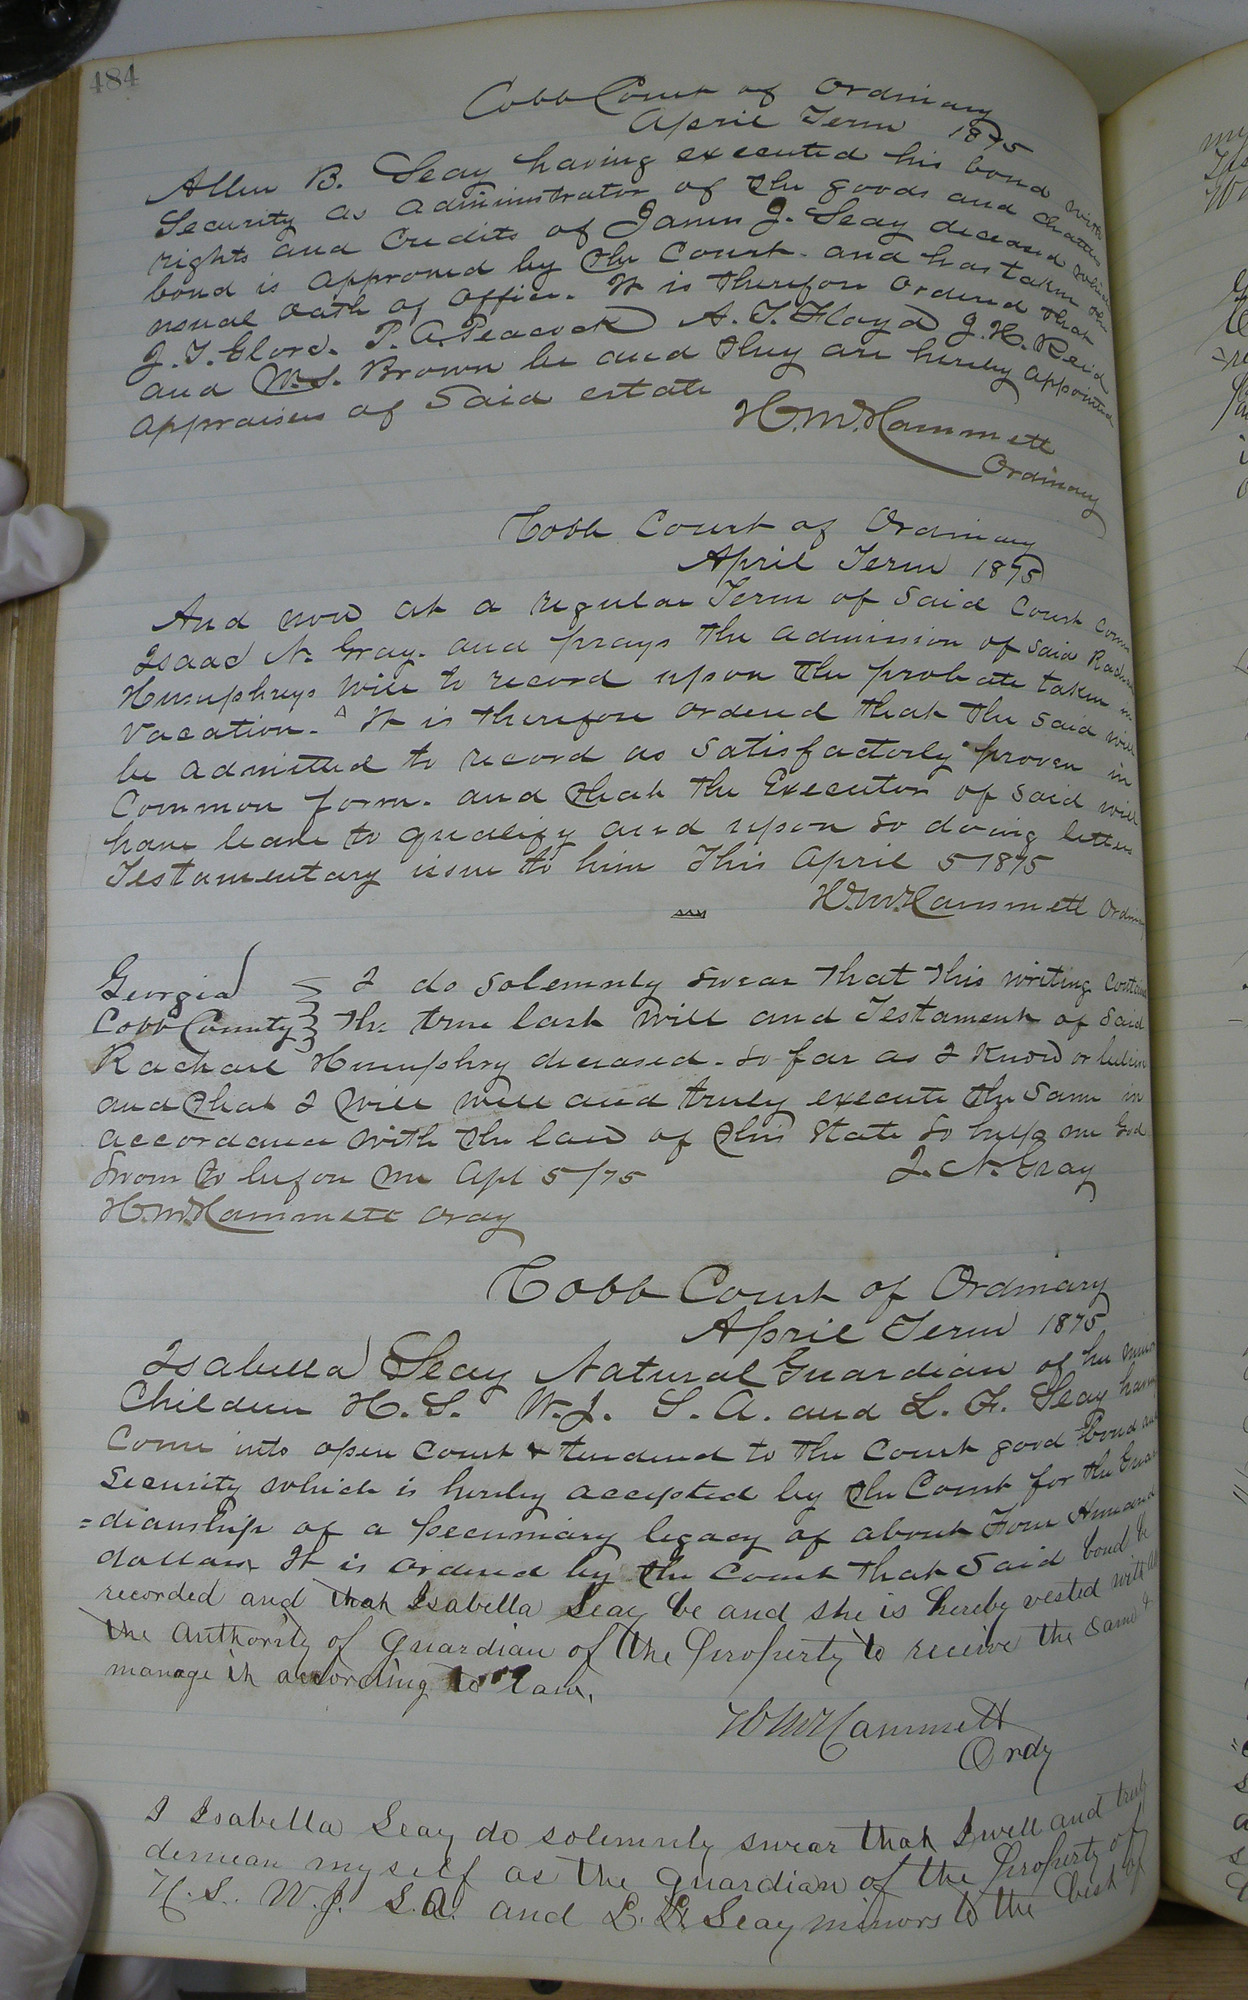 484
Cobb Court of Ordinary
April Term 1875
Allen B. Seay having executed his bond with
Security as administrator of the goods and chattels
rights and credits of James J. Seay deceased which
bond is approved by the Court. and has taken the
usual oath of office. It is therefore ordered that
J. T. P. A. Peacock A. T. Floyd J. H. Reid
and M. S. Brown be and they are hereby appointed
appraisers of said estate
H. M. Hammett
Ordinary
Cobb Court of Ordinary
April Term 1875
And now at a regular Term of said Court comes
Isaac N. Gray. and prays the admission of said Rachael
Humphreys will to record upon the probate taken in
Vacation. It is therefore ordered that the said will
be admitted to record as satisfactorly proven in
Common form. and that the Executor of said will
have leave to qualify and upon so doing letters
Testamentary issue to him This April 5 1875
H. M. Hammett Ordinary
Georgia I do solemnly swear that this writing contains
Cobb County the true last will and Testament of said
Rachael Humphry deceased. so far as I know or believe
and that I will well and truly execute the same in
accordance with the laws of this State so help me God
Sworn to before me Apl 5/75 I. N. Gray
H. M. Hammett Ordy
Cobb Court of Ordinary
April Term 1875
Isabella Seay Natural Guardian of her minor
Children H. S. W. J. S. A. and L. F. Seay having
Come into open Court & tendered to the Court good Bond and
Security which is hereby accepted by the Court for the Guar
=dianship of a pecuniary legacy of about Four Hundred
dollars It is ordered by the Court that said bond be
recorded and that Isabella Seay be and she is hereby vested with all
the authority of guardian of the property to receive the same &
manage it according to law.
H M Hammett
Ordy
I Isabella Seay do solemnly swear that I well and truly
demean myself as the guardian of the property of
H. S. W. J. S. A. and L. F. Seay minors to the best of